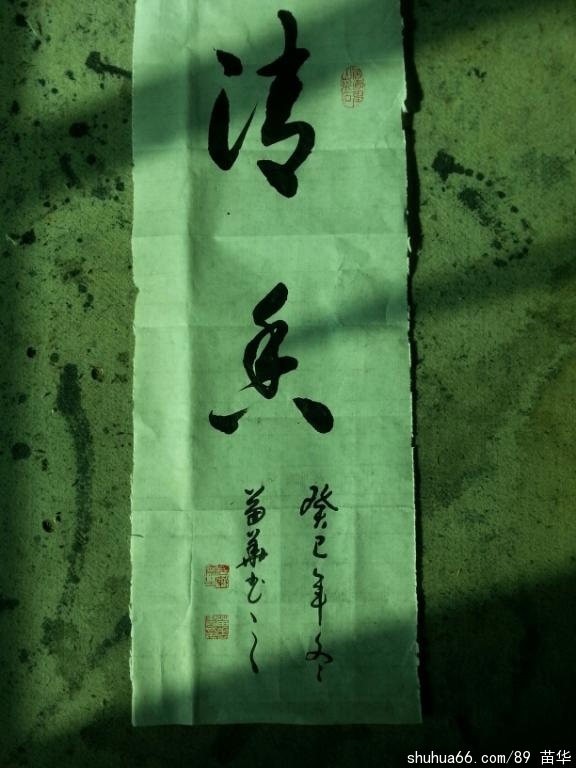 清香
癸巳年冬
苗華书之
shuhua66.com/89 苗华